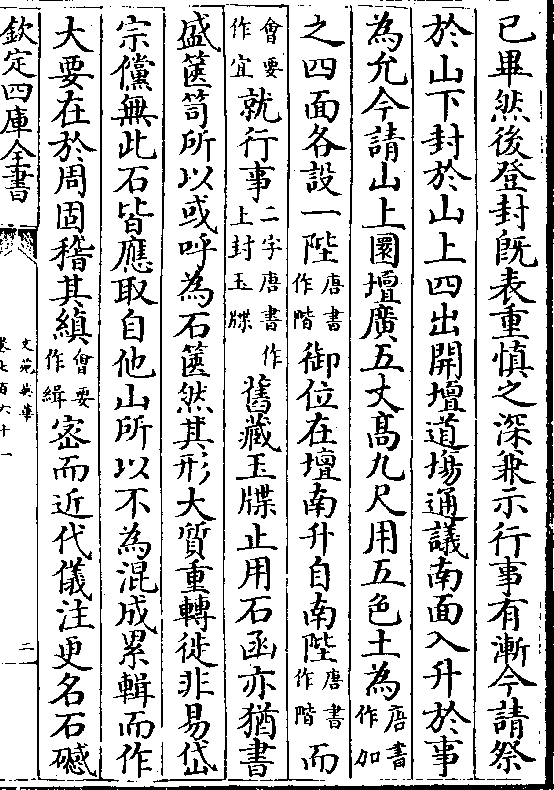 已畢然後登封既表重慎之深兼示行事有漸今請祭
於山下封於山上四出開壇道場通議南面入升於事
為允今請山上圜壇廣五丈高九尺用五色土為唐書作加
之四面各設一陛唐書作階御位在壇南升自南陛唐書作階而
會要作宜就行事二字唐書作上封玉牒舊藏玉牒止用石函亦猶書
盛篋笥所以或呼為石篋然其形大質重轉徙非易岱
宗儻無此石皆應取自他山所以不為混成累輯而作
大要在於周固稽其縝會要作緝宻而近代儀注更名石䃭
欽定四庫全書
文苑英華
卷七百六十一
二